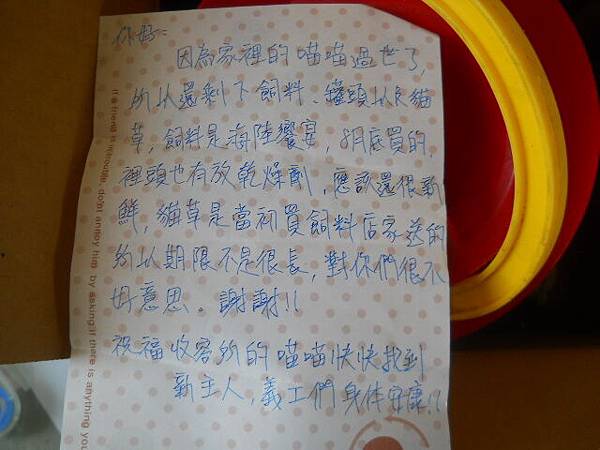 你好:
因為家裡的喵喵過世了,
所以還剩下飼料、罐頭以及貓
草,飼料是海陸饗宴,3月底買的,
裡頭也有放乾燥劑,應該還很新
鮮,貓草是當初買飼料店家送的
所以期限不是很長,對你們很不
好意思。謝謝!!
祝福收容所的喵喵快快找到
新主人,義工們身体安康!!
It a friend is introuble, do'nt annoy him by asking it there is anything you